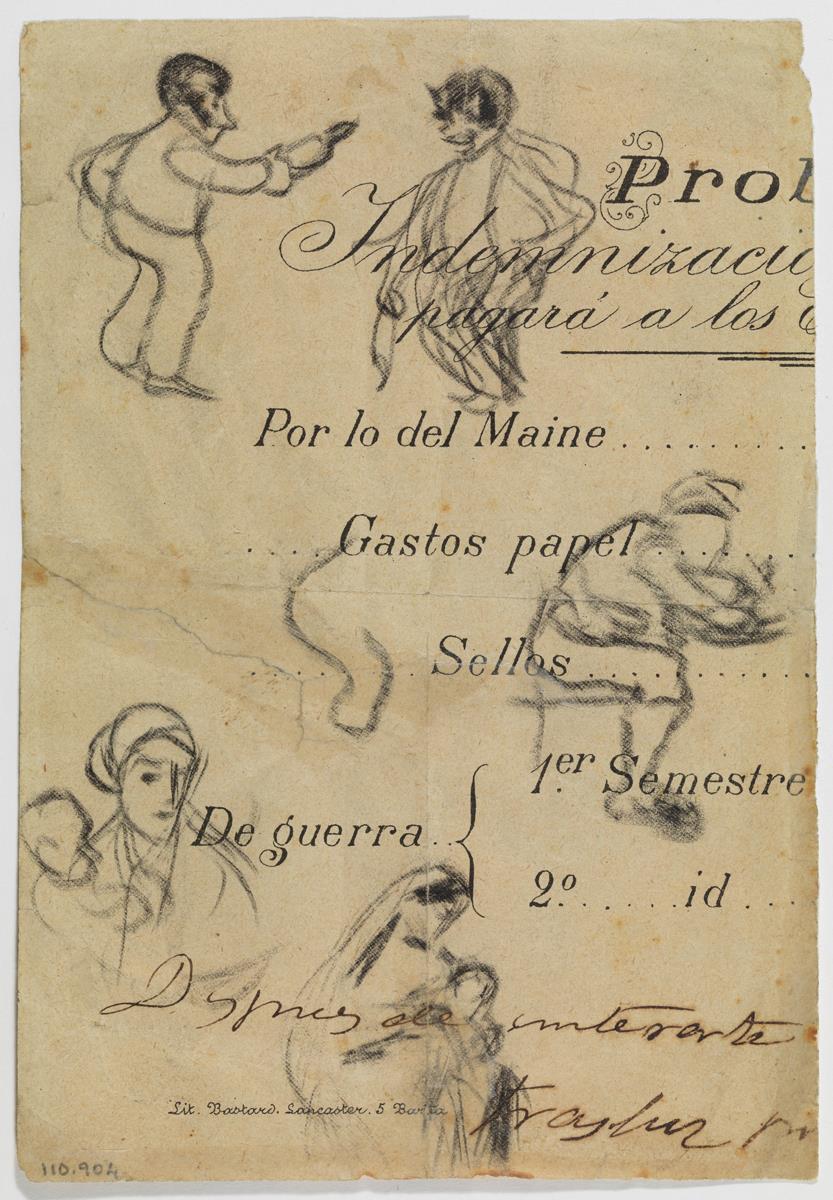 Prob
Indemnizació
pagará a los
Por lo del Maine ..........
.... Gastos papel ..........
.......... Sellos ..........
De guerra .. { 1.er Semestre
2º ...... id ....
Despues de enterarte
trasluz
Lit. Bastard. Lancaster. 5 Barna
110.904